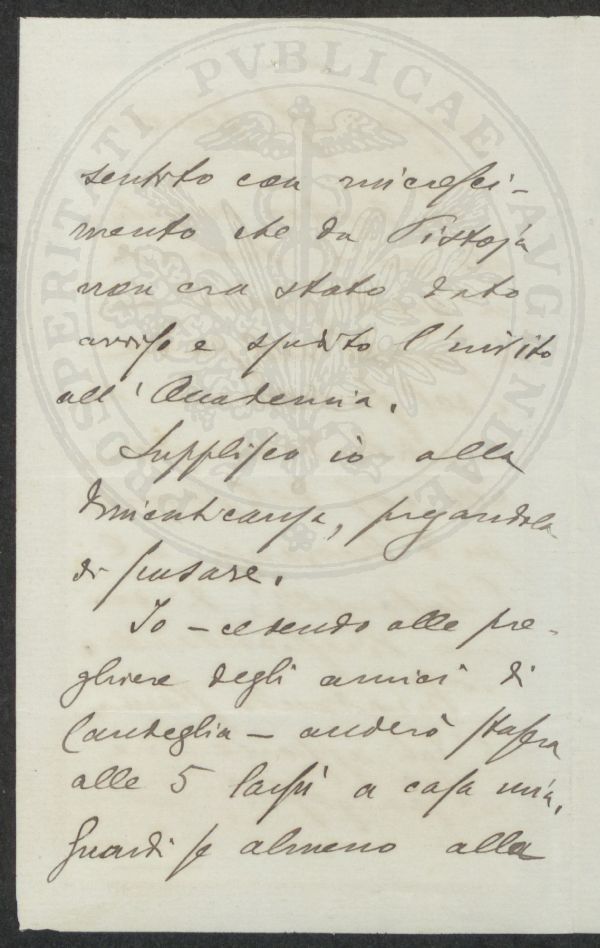 PROSPERITATI PVBLICAE AVGENDAE
sentito con rincresci-
mento che da Pistoja
non era stato dato
avviso e spedito l'invito
all'Accademia.
Supplisco io alla
dimenticanza, pregandola
di scusare.
Io - cedendo alle pre-
ghiere degli amici di
Candeglia - anderò stasera
alle 5 lassù a casa mia.
Guardi se almeno alla